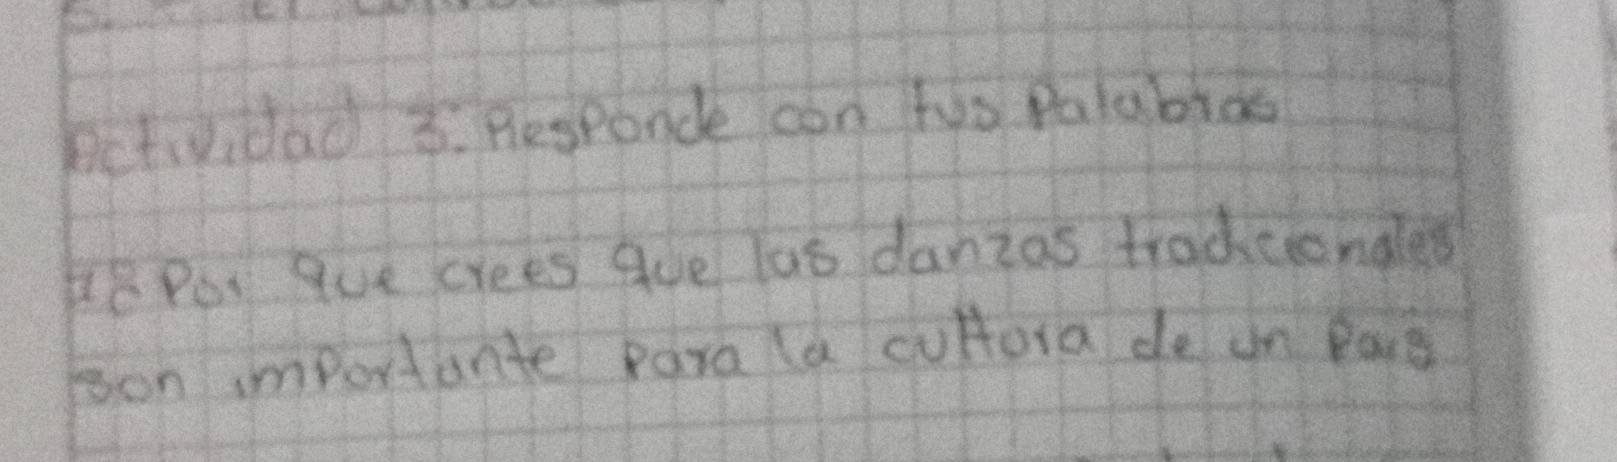 Actividad 3. Responde con tus Palabras
1 ¿ Por que crees que las danzas tradicionales
son importante para la cultora de un Pais